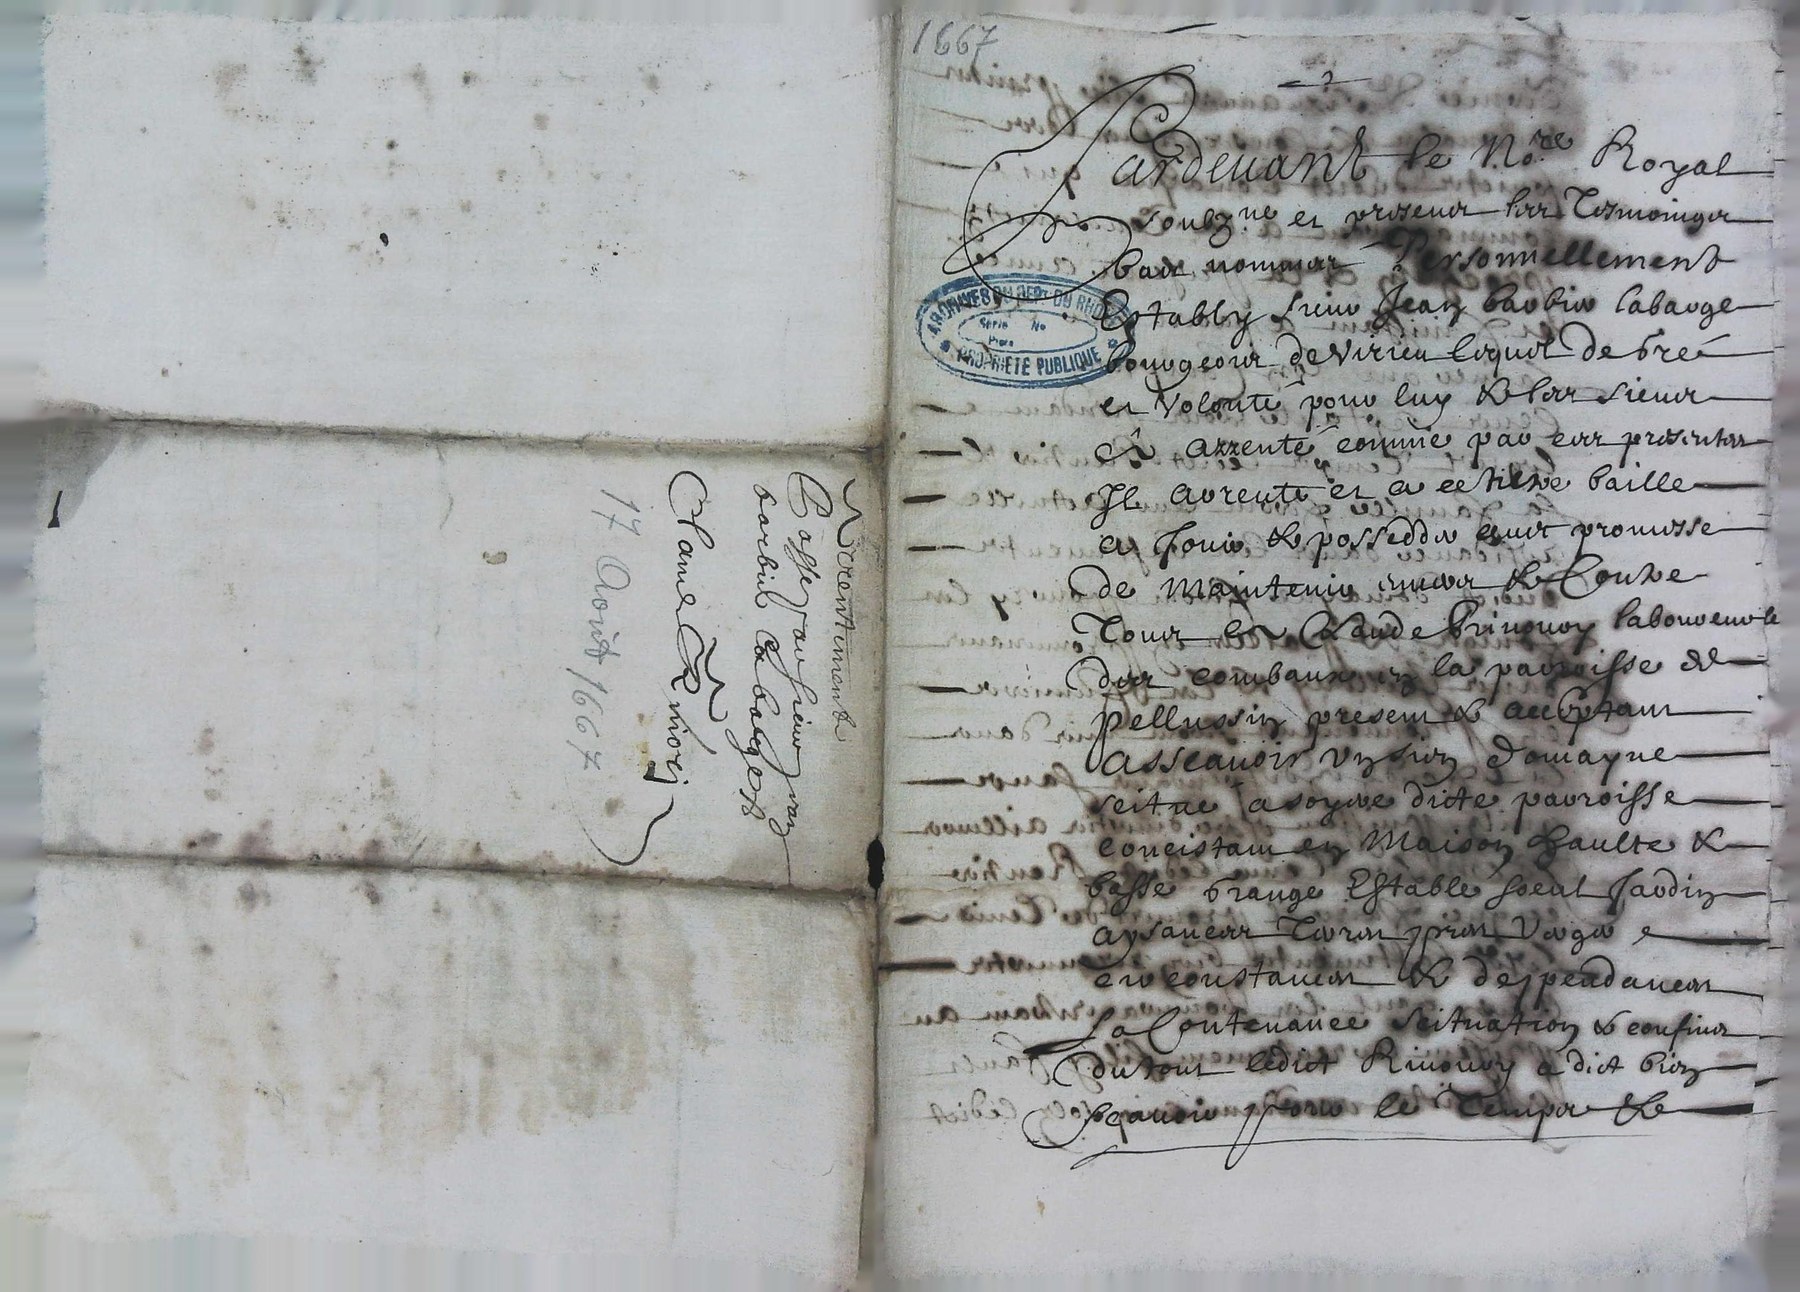 Arrentement
Passé par sieur Jean
barbier labarge &
Claude Rivorÿ
17 Août 1667
1667
Pardevant le No.re Royal
soubz.né et presens les Tesmoingz
bas nommés Personnellement
Estably sieur Jean barbier labarge
bourgeois de Virieu lequel de gré
et volonté pour luy & les siens
a arrenté comme par ces presentes
Il arrente et a ce tiltre baille
a Jouir & posseder avec promesse
de Maintenir envers & Contre
Tous a Claude Rivoyry laboureur
des combaux en la parroisse de
Pellussin present & acceptant
Asscauoir un sien domayne
scitué a soyere dicte parroisse
concistant en Maison haulte &
basse Grange Estable soeul Jardin
aysances Terres prés Verger
circonstances & despendances
La Contenance scituation & confins
du tout ledict Rivoyry a dict bien
scauoir pour le Temps &
ARCHIVES DU DEPT DU RHONE
Serie No
Piece
PROPRIETE PUBLIQUE